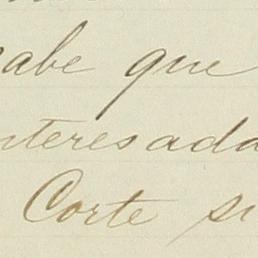 sabe que
nteresada
Corte si